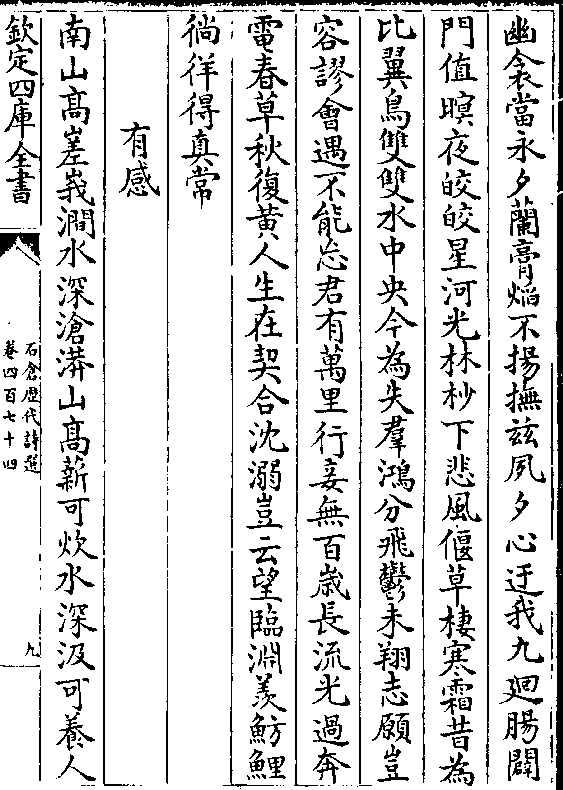 幽衾當永夕蘭膏焰不揚撫兹夙夕心迂我九廻腸闢
門值暝夜皎皎星河光林杪下悲風偃草棲寒霜昔為
比翼鳥雙雙水中央今為失羣鴻分飛鬱未翔志願豈
容謬會遇不能忘君有萬里行妾無百歲長流光過奔
電春草秋復黄人生在契合沈溺豈云望臨淵羨魴鯉
徜徉得真常
有感
南山髙嵳峩澗水深滄漭山髙薪可炊水深汲可養人
欽定四庫全書
石倉歴代詩選
卷四百七十四
九